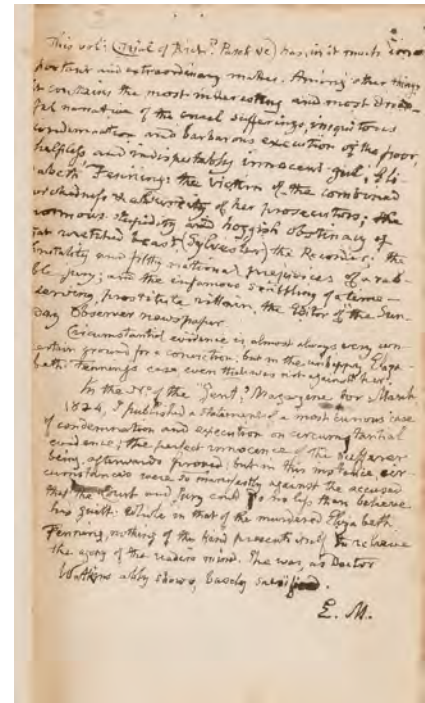 This vol: (Trial of Richd. Patch &c) has in it much im=
portant and extraordinary matter. Among other things
it contains the most interesting and most dread=
ful narrative of the cruel sufferings, iniquitous
condemnation and barbarous execution of the poor,
helpless and indisputably innocent girl, Eli=
zabeth Fenning: the victim of the combined
wickedness & absurdity of her prosecutors; the
enormous stupidity and hoggish obstinacy of
that wretched beast (Sylvester) the Recorder; the
brutality and filthy national prejudices of a rab=
ble jury; and the infamous scribbling of a time-
serving, prostitute villain, the Editor of the Sun=
day Observer newspaper.
Circumstantial evidence is almost always very un=
certain ground for a conviction; but in the unhappy Eliza=
beth Fennings case, even that was not against her.
In the No. of the "Gent.s Magazine for March
1824, I published a statement of a most curious case
of condemnation and execution on circumstantial
evidence; the perfect innocence of the sufferer
being afterwards proved; but in this instance, cir=
cumstances were so manifestly against the accused
that the Court and Jury could do no less than believe
his guilt: While in that of the murdered Elizabeth
Fenning, nothing of the kind presents itself to relieve
the agony of the readers mind. She was, as Doctor
Watkins ably shows, basely sacrificed.
E. M.